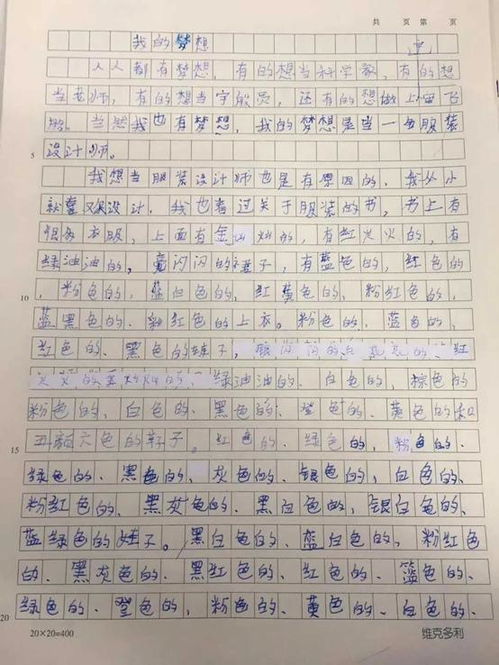 共 页 第 页
我的梦想
人人都有梦想,有的想当科学家,有的想
当老师,有的想当宇航员,还有的想做上留飞
船。当然我也有梦想,我的梦想是当一名服装
5 设计师。
我想当服装设计师也是有原因的,我从小
就喜欢设计.我也看过关于服装的书,书上有
很多衣服,上面有金灿灿的,有红火火的,有
绿油油的,闪闪的裙子,有蓝色的,红色的
10 ,粉色的,蓝白色的,红黄色的,粉红色的,
蓝黑色的.粉红色的上衣。粉色的,蓝色的,
红色的、黑色的裤子,银闪闪的白亮亮的、红
火火的金灿灿的、绿油油的、白色的,棕色的
粉色的,白色的、黑色的、登色的、黄色的和
15 五颜六色的鞋子。红色的、绿色的,粉色的、
绿色的、黑色的、灰色的、银色的,白色的、
粉红色的、黑灰色的、黑白色的,银白色的、
蓝绿色的娃子。黑白色的、蓝白色的,粉红色
的、黑灰色的、黑红色的、红色的、篮色的、
20 绿色的、登色的,粉色的、黄色的、白色的、
20×20=400
维克多利